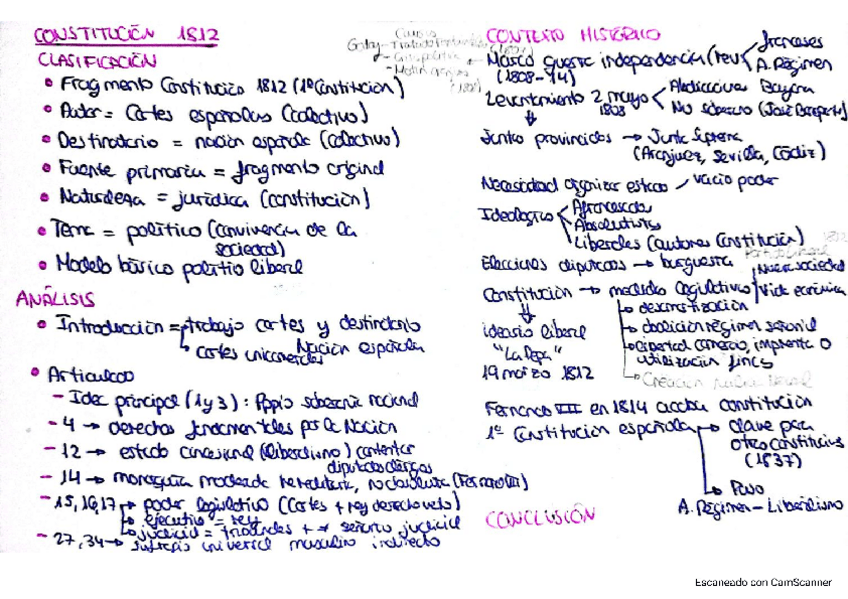 CONSTITUCIÓN 1812
CLASIFICACIÓN
• Fragmento Constitución 1812 (1ª Constitución)
• Autor = Cortes españolas (colectivo)
• Destinatario = nación española (colectivo)
• Fuente primaria = fragmento original
• Naturaleza = jurídica (constitución)
• Tema = político (convivencia de la sociedad)
• Modelo básico político liberal
ANÁLISIS
• Introducción = trabajo cortes y destinatario
Nación española
↳ cortes unicamerales
• Artículos
- Idea principal (1 y 3): Ppio soberanía nacional
- 4 → derechos fundamentales por la Nación
- 12 → estado confesional (liberalismo) contentar
diputados clérigos
- 14 → monarquía moderada hereditaria, no absoluta (Fernando VII)
- 15, 16, 17 → poder legislativo (Cortes + rey derecho veto)
↳ ejecutivo = rey
↳ judicial = tribunales
- 27, 34 → sufragio universal masculino indirecto
CONTEXTO HISTÓRICO
Marco guerra independencia (rev
(1808-14)
franceses
A. Régimen
Levantamiento 2 mayo
1808
Abdicaciones Bayona
No soberano (José Bonaparte)
Juntas provinciales → Junta Suprema
(Aranjuez, Sevilla, Cádiz)
Necesidad organizar estado / vacío poder
Ideologías
Afrancesados
Absolutistas
Liberales (autores Constitución)
Elecciones diputados → burguesía
Constitución → medidas legislativas
Nueva sociedad
Vida económica
↳ desamortización
ideario liberal
↳ abolición régimen señorial
"La Pepa"
↳ libertad comercio, imprenta o
utilización fincas
19 marzo 1812
↳ Creación
Fernando VII en 1814 acaba constitución
1ª Constitución española → clave para
otras constituciones
(1837)
↳ Paso
A. Régimen - Liberalismo
CONCLUSIÓN
Escaneado con CamScanner